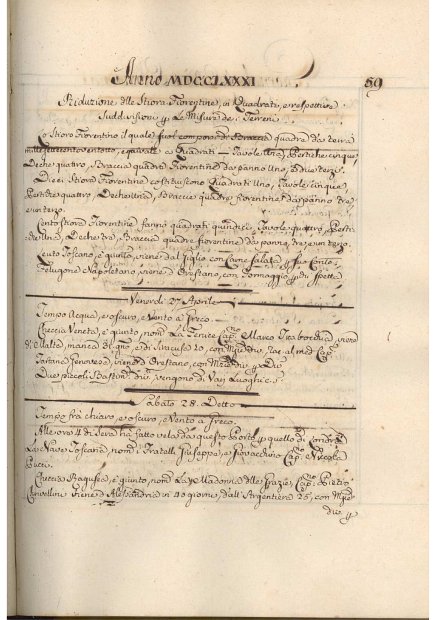 Anno MDCCLXXXI 59
Riduzione delle Stiora Fiorentine, in Quadrati, e rispettive
Suddivisioni p. le Misure de' Terreni
Lo Stioro Fiorentino il quale suol comporsi di Braccia quadre da terra
equivale a Quadrati — Tavole Una, Pertiche cinque,
Deche quattro, Braccia quadre Fiorentine da panno Una, e due terzi.
Dieci Stiora Fiorentine costituiscono Quadrati Uno, Tavole cinque,
Pertiche quattro, Deche Una, Braccia quadre Fiorentine da panno tre,
e un terzo.
Cento Stiora Fiorentine fanno quadrati quindici, Tavole quattro, Perti-
che Una, Deche tre, Braccia quadre fiorentine da panno, tre e un terzo.
Leuto Toscano, è quinto, viene dal Giglio con Carne Salata p. suo Conto.
Felugone Napoletano, viene d'Orestano, con Formaggio p. di Spetta
Venerdì 27 Aprile
Tempo acqua, e oscuro, e Vento a Greco.
Checcia Veneta, è quinto, nom. La Fenice Cap.no Marco viene
di Malta, manca gno. e di Siracusa 20, con
Tartana Genovese viene d'Orestano, con
Due piccoli Bastim. vengono da Vary Luoghi &c.
Sabato 28. Detto
Tempo frà chiaro, e oscuro, e Vento a Greco.
Alle ore 4 di Sera hà fatto vela da questo Porto p. quello di
La Nave Toscana, nom. i Fratelli Giuseppe, e Giovacchino Cap.no Niccola
Pucci.
Checcia Ragusea, è quinto, nom. La Madonna delle Grazie, Cap.no Pietro
viene d'Alessandria in 40 giorni, dall'Argentiera 25, con
p.